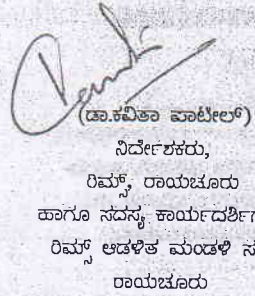 (ಡಾ.ಕವಿತಾ ಪಾಟೀಲ್)
ನಿರ್ದೇಶಕರು,
ರಿಮ್ಸ್, ರಾಯಚೂರು
ಹಾಗೂ ಸದಸ್ಯ
ರಿಮ್ಸ್ ಆಡಳಿತ ಮಂಡಳಿ
ರಾಯಚೂರು